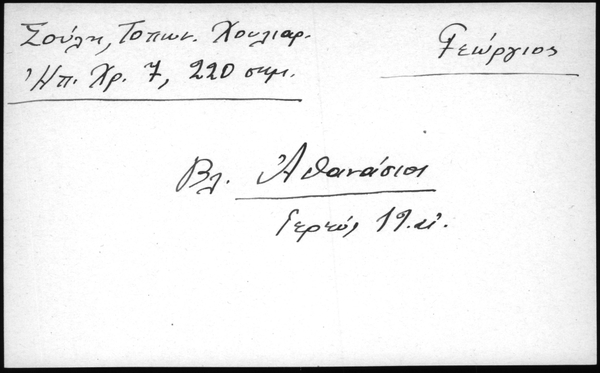 Σούλη, Τοπων. Χουλιαρ.
Ἠπ. Χρ. 7, 220 σημ.
Γεώργιος
Βλ. Ἀθανάσιος
Ἱερεύς 19. αἰ.